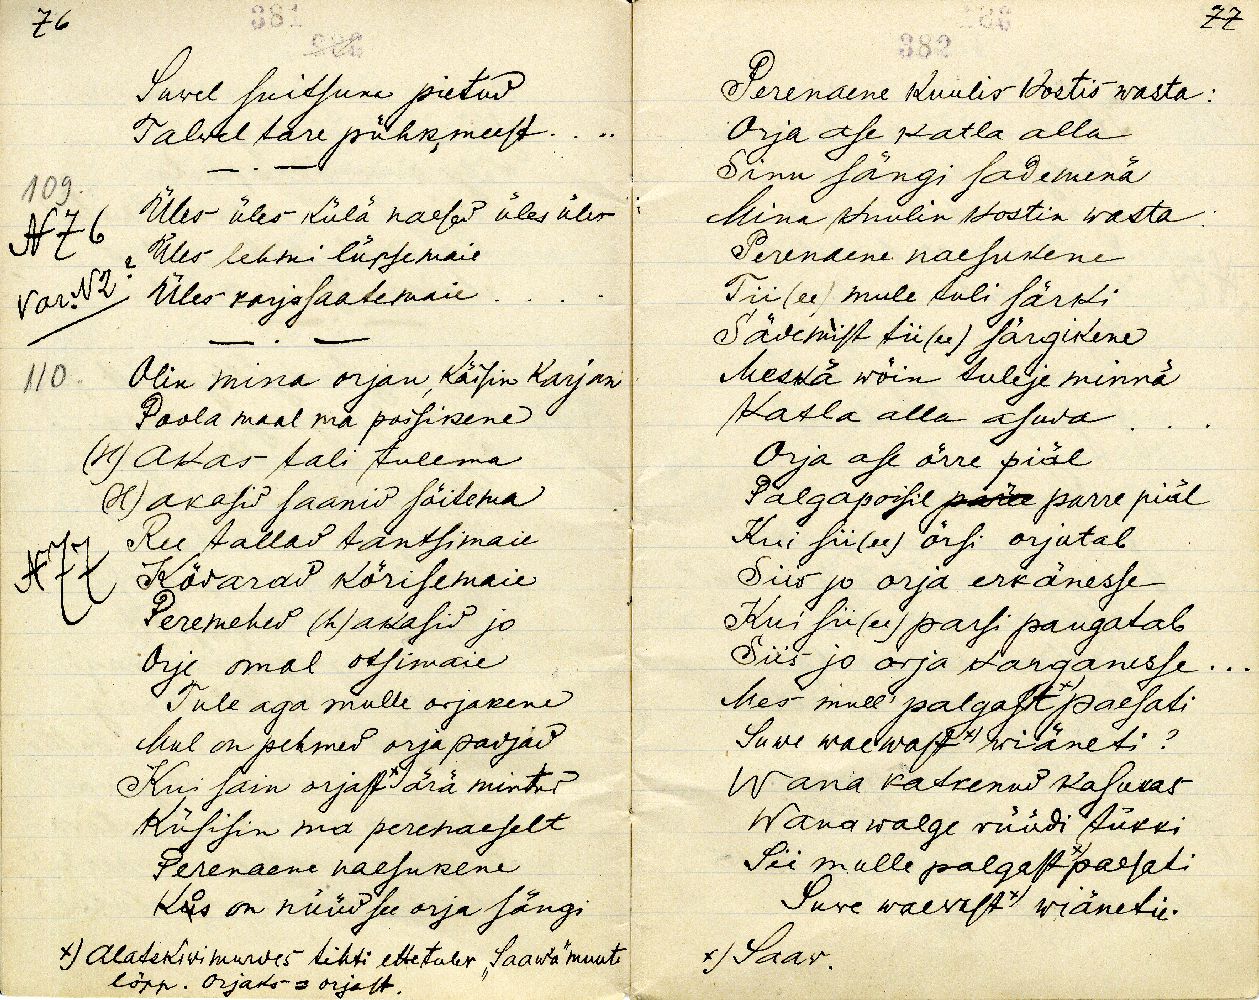 76
381
Suwel suitsuna pietud
Talwel tare pühkmest . . ..
109.
N 76
Var: N2?
Üles üles külä naesed üles üles
Üles lehmi lüpsemaie
Üles karja saatemaie . . . .
110.
Olin mina orjan, käisin karjan
Poola maal ma poisikene
(H) akas tali tulema
(H) akasid saanid sõitema
N 77
Ree tallad tantsimaie
Ködarad körisemaie
Peremehed (h) akasid jo
Orje omal otsimaie
Tule aga mulle orjakene
Mul on pehmed orja padjad
Kui sain orjast x) ärä mintud
Küsisin ma perenaeselt
Perenaene naesukene
Kus on nüüd see orja sängi
x) Alatskiwi murdes tihti ettetulev "Saawa" muute
löpp. Orjaks = orjast.
77
382
Perenaene kuulis kostis wasta:
Orja ase katla alla
Sinu sängi sademenä
Mina kuulin kostin wasta:
Perenaene naesukene
Tii (ee) mule tuli särki
Sädemist tii (ee) särgikene
Meskä wöin tuleje minnä
Katla alla asuda . . .
Orja ase örre piäl
Palgapoisil parre piäl
Kui sii (ee) örsi orjutab
Siis jo orja erkänesse
Kui sii (ee) parsi paugatab
Siis jo orja karganesse ...
Mes mull' palgast x) paesati
Suwe waewast x) wiäneti?
Wana katkenud kasukas
Wana walge rüüdi tükki
Sii mulle palgast x) paesati
Suwe waewast x) wiänetie.
x) Saav.